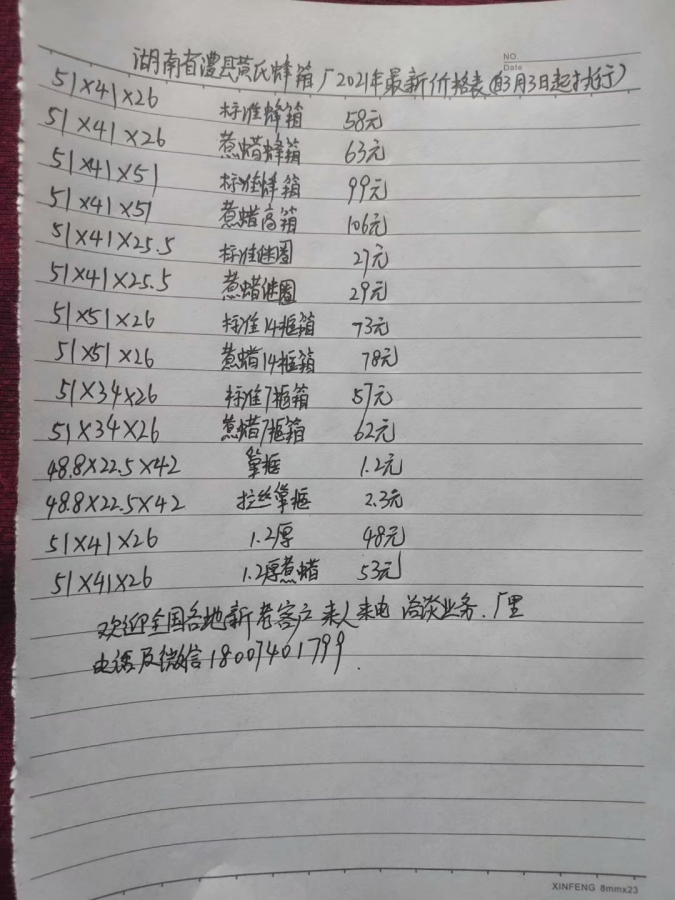 NO.
Date
湖南省澧县黄氏蜂箱厂2021年最新价格表(自3月3日起执行)
51×41×26 标准蜂箱 58元
51×41×26 煮蜡蜂箱 63元
51×41×51 标准蜂箱 99元
51×41×51 煮蜡高箱 106元
51×41×25.5 标准继圈 27元
51×41×25.5 煮蜡继圈 29元
51×51×26 标准14框箱 73元
51×51×26 煮蜡14框箱 78元
51×34×26 标准7框箱 57元
51×34×26 煮蜡7框箱 62元
48.8×22.5×42 巢框 1.2元
48.8×22.5×42 拉丝巢框 2.3元
51×41×26 1.2厚 48元
51×41×26 1.2厚煮蜡 53元
欢迎全国各地新老客户来人来电洽谈业务.厂里
电话及微信18007401799.
XINFENG 8mmx23